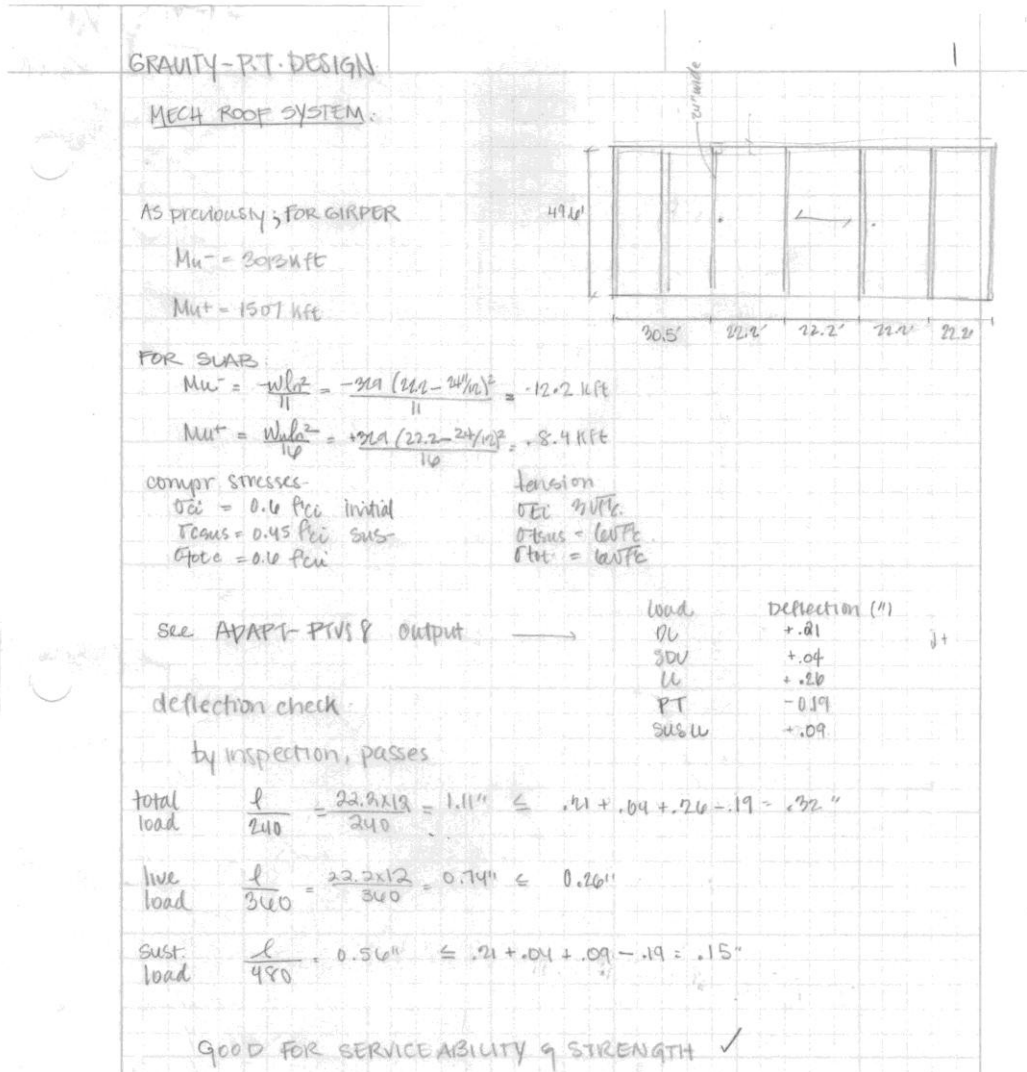 1
GRAVITY - P.T. DESIGN
MECH ROOF SYSTEM.
24" wide
49.6'
30.5' 22.2' 22.2' 22.2' 22.2'
As previously ; FOR GIRDER
Mu- = 3013 kft
Mu+ = 1507 kft
FOR SLAB
Mu- = -wln²/11 = -329 (22.2 - 24/12)²/11 = -12.2 kft
Mu+ = Wuln²/16 = +329 (22.2 - 24/12)²/16 = +8.4 kft
compr stresses tension
σci = 0.6 f'ci initial σti 3√f'c
σcsus = 0.45 f'ci sus- σtsus = 6√f'c
σtotc = 0.6 f'ci σtot = 6√f'c
see ADAPT- PTV8 output →
load Deflection (")
DL +.21
SDL +.04
LL +.26
PT -0.19
SUS LL +.09
deflection check
by inspection, passes
total load l/240 = 22.2x12/240 = 1.11" ≤ .21 + .04 + .26 - .19 = .32"
live load l/360 = 22.2x12/360 = 0.74" ≤ 0.26"
sust. load l/480 = 0.56" ≤ .21 + .04 + .09 - .19 = .15"
GOOD FOR SERVICEABILITY & STRENGTH ✓